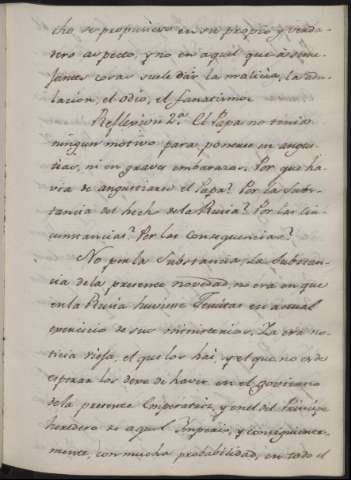 cho, se propusiese en su propio y verda-
dero aspecto, y no en aquel que à seme-
jantes cosas suele dár la malicia, la adu-
lacion, el odio, el fanatismo.
Reflexion 2.ª El Papa no tenia
ningun motivo para ponerse en angus-
tias, ni en graves embarazos. Por que ha-
via de angustiarse el Papa? Por la Subs-
tancia del hecho de la Rusia? Por las cir-
cunstancias? Por las consequencias?
No por la Substancia. La Substan-
cia de la presente novedad, no era en que
en la Rusia huviese Jesuitas en actual
exercicio de sus ministerios. Za era no-
ticia vieja, el que los hai, y el que no es de
esperar los dexe de haver en el govierno
de la presente Emperatriz, y en el del Principe
heredero de aquel Imperio, y consiguiente-
mente, con mucha probabilidad, en todo el